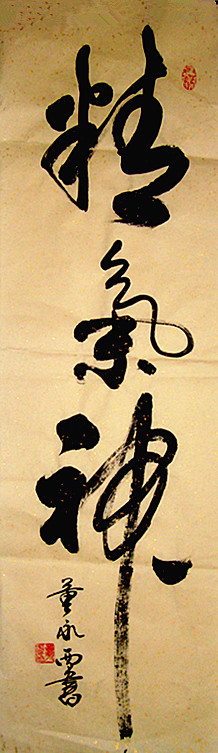 精氣神
董永西書